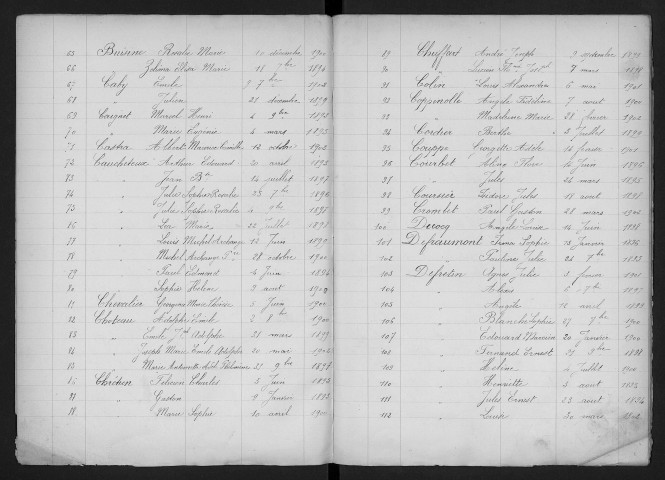 65 Buisine Rosalie Marie 10 décembre 1900
66 " Zélima Marie 11 9bre 1894
67 Caby Emile 9 7bre 1902
68 " Julien 21 décembre 1899
69 Caignet Marcel Henri 4 9bre 1893
70 " Marie Eugénie 4 mars 1895
71 Castra Albert Maurice Camille 12 octobre 1902
72 Caucheteux Arthur Edmond 20 avril 1892
73 " Jean Bte 14 juillet 1897
74 " Julie Sophie Rosalie 25 7bre 1896
75 " Julie Sophie Rosalie 1897
76 " Léa Maria 22 Juillet 1898
77 " Louis Michel Archange 12 Juin 1890
78 " Michel Archange 28 octobre 1900
79 " Paul Edmond 4 Juin 1894
80 " Sophie Hélène 2 août 1902
81 Chevalier Georgina Marie Thérèse 5 Juin 1900
82 Choteau Adolphe Emile 2 8bre 1900
83 " Emile Jh Adolphe 21 mars 1899
84 " Joseph Marie Emile Adolphe 20 mai 1902
" Marie Antoinette 21 9bre 1898
Chrétien Félicien Charles 5 Juin 1893
" Gaston 9 Janvier 1892
" Marie Sophie 10 avril 1901
89 Chuffart André Joseph 2 septembre
90 " Lucien 7 mars 1898
91 Colin Louis Alexandre 6 mai 1901
92 Coppenolle Angèle 7 août 1900
93 " Madeleine Marie 28 février 1902
94 Cordier Berthe 3 Juillet 1899
95 Couppe Georgette Adèle 14 février 1901
96 Courbet Aline Flore 26 Juin 1896
97 " Jules 24 mars 1895
98 Coursier Isidore Jules 18 août 1898
99 Crombet Paul Gaston 28 mars 1901
100 Decocq Angèle Louise 14 Juin 1898
101 Defraumont Simon Sophie 15 Janvier 1896
102 " Pauline Julie 24 7bre 1893
103 Defretin Agnès Julie 3 février 1901
104 " Alice 6 7bre
105 " Angèle 18 avril
106 " Blanche Sophie 27 7bre 1900
107 " Edouard Maurice 20 Janvier 1900
108 " Fernand Ernest 29 9bre 1898
109 " Hélène 4 Juillet 1900
110 " Henriette 3 août 1896
111 " Jules Ernest 23 août 1894
112 " Louise 30 mars 1902